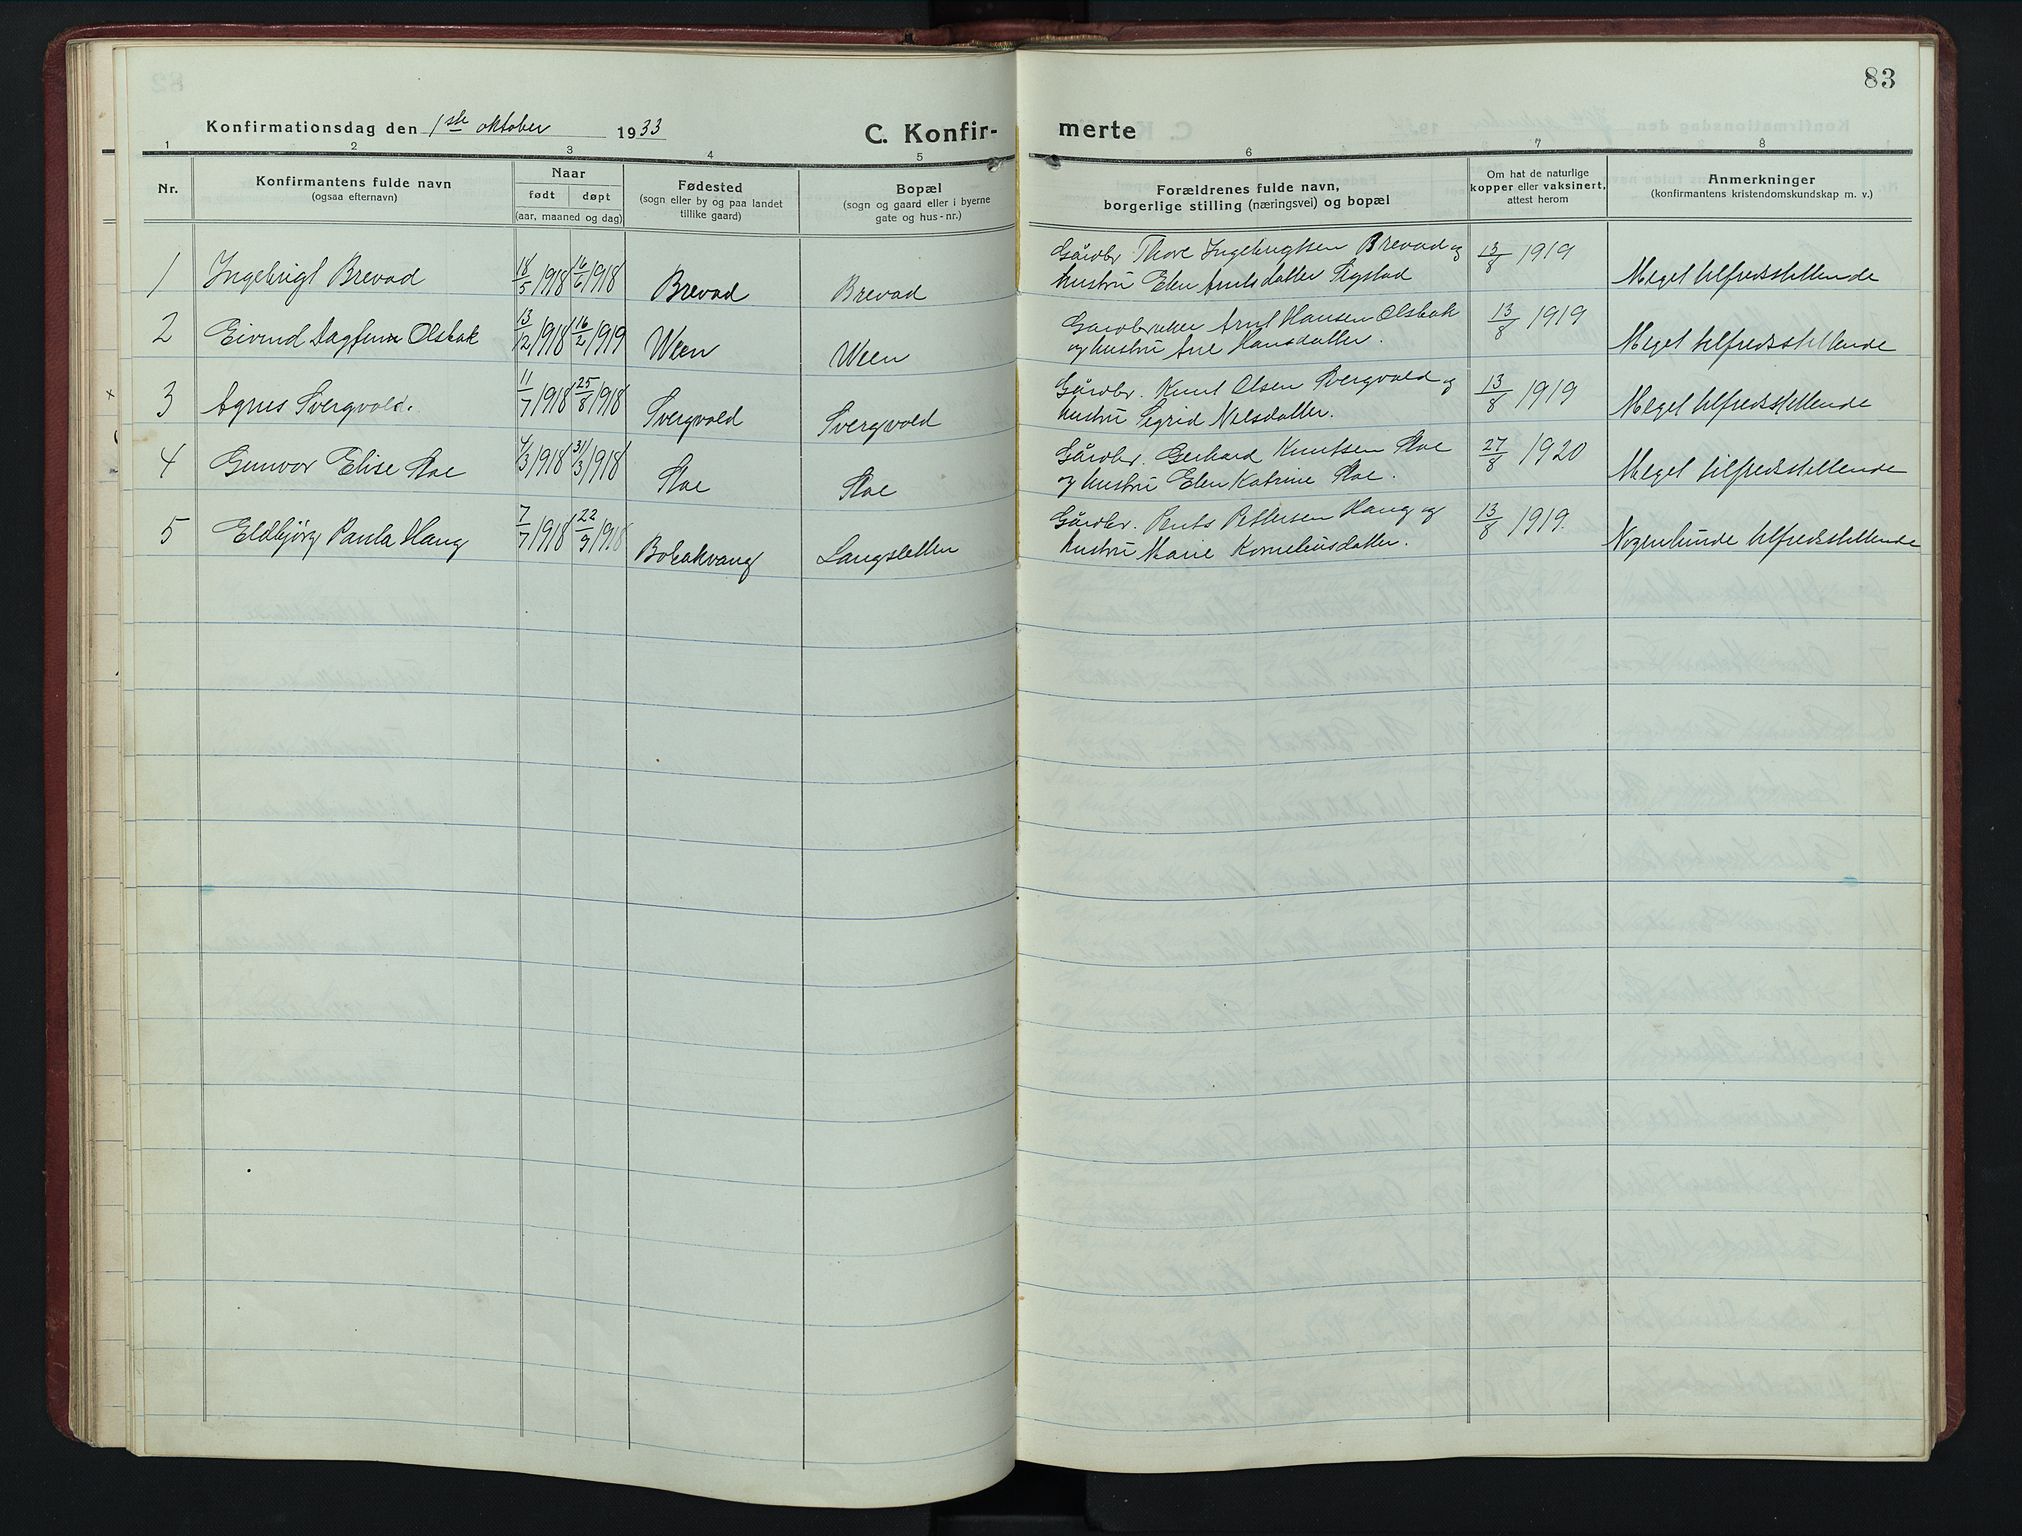 83
Konfirmationsdag den 1ste oktober 1933
C. Konfir-
merte
1 2 3 4 5 6 7 8
Nr.
Konfirmantens fulde navn
(ogsaa efternavn)
Naar
født døpt
(aar, maaned og dag)
Fødested
(sogn eller by og paa landet
tillike gaard)
Bopæl
(sogn og gaard eller i byerne
gate og hus-nr.)
Forældrenes fulde navn,
borgerlige stilling (næringsvei) og bopæl
Om hat de naturlige
kopper eller vaksinert,
attest herom
Anmerkninger
(konfirmantens kristendomskundskap m. v.)
1 Ingebrigt Brevad 18/5 1918 16/6 1918 Brevad Brevad
Gårdbr. Thore Ingebrigtsen Brevad og
hustru Elen Arntsdatter Sigstad
13/8 1919 Meget tilfredsstillende
2 Eivind Dagfinn Olsbak 13/12 1918 16/2 1919 Ween Ween
Gårdbruker Arnt Hansen Olsbak
og hustru Ane Hansdatter.
13/8 1919 Meget tilfredsstillende
3 Agnes Svergvold. 11/7 1918 25/8 1918 Svergvold Svergvold
Gårdbr. Knut Olsen Svergvold og
hustru Sigrid Nilsdatter.
13/8 1919 Meget tilfredsstillende
4 Gunvor Elise Moe 4/3 1918 31/3 1918 Moe Moe
Gårdbr. Gerhard Knutsen Moe
og hustru Elen Katrine Moe.
27/8 1920 Meget tilfredsstillende
5 Eldbjørg Paula Haug 7/7 1918 22/9 1918 Langsletten
Gårdbr. Pettersen Haug og
hustru Marie Korneliusdatter.
13/8 1919. Nogenlunde tilfredsstillende